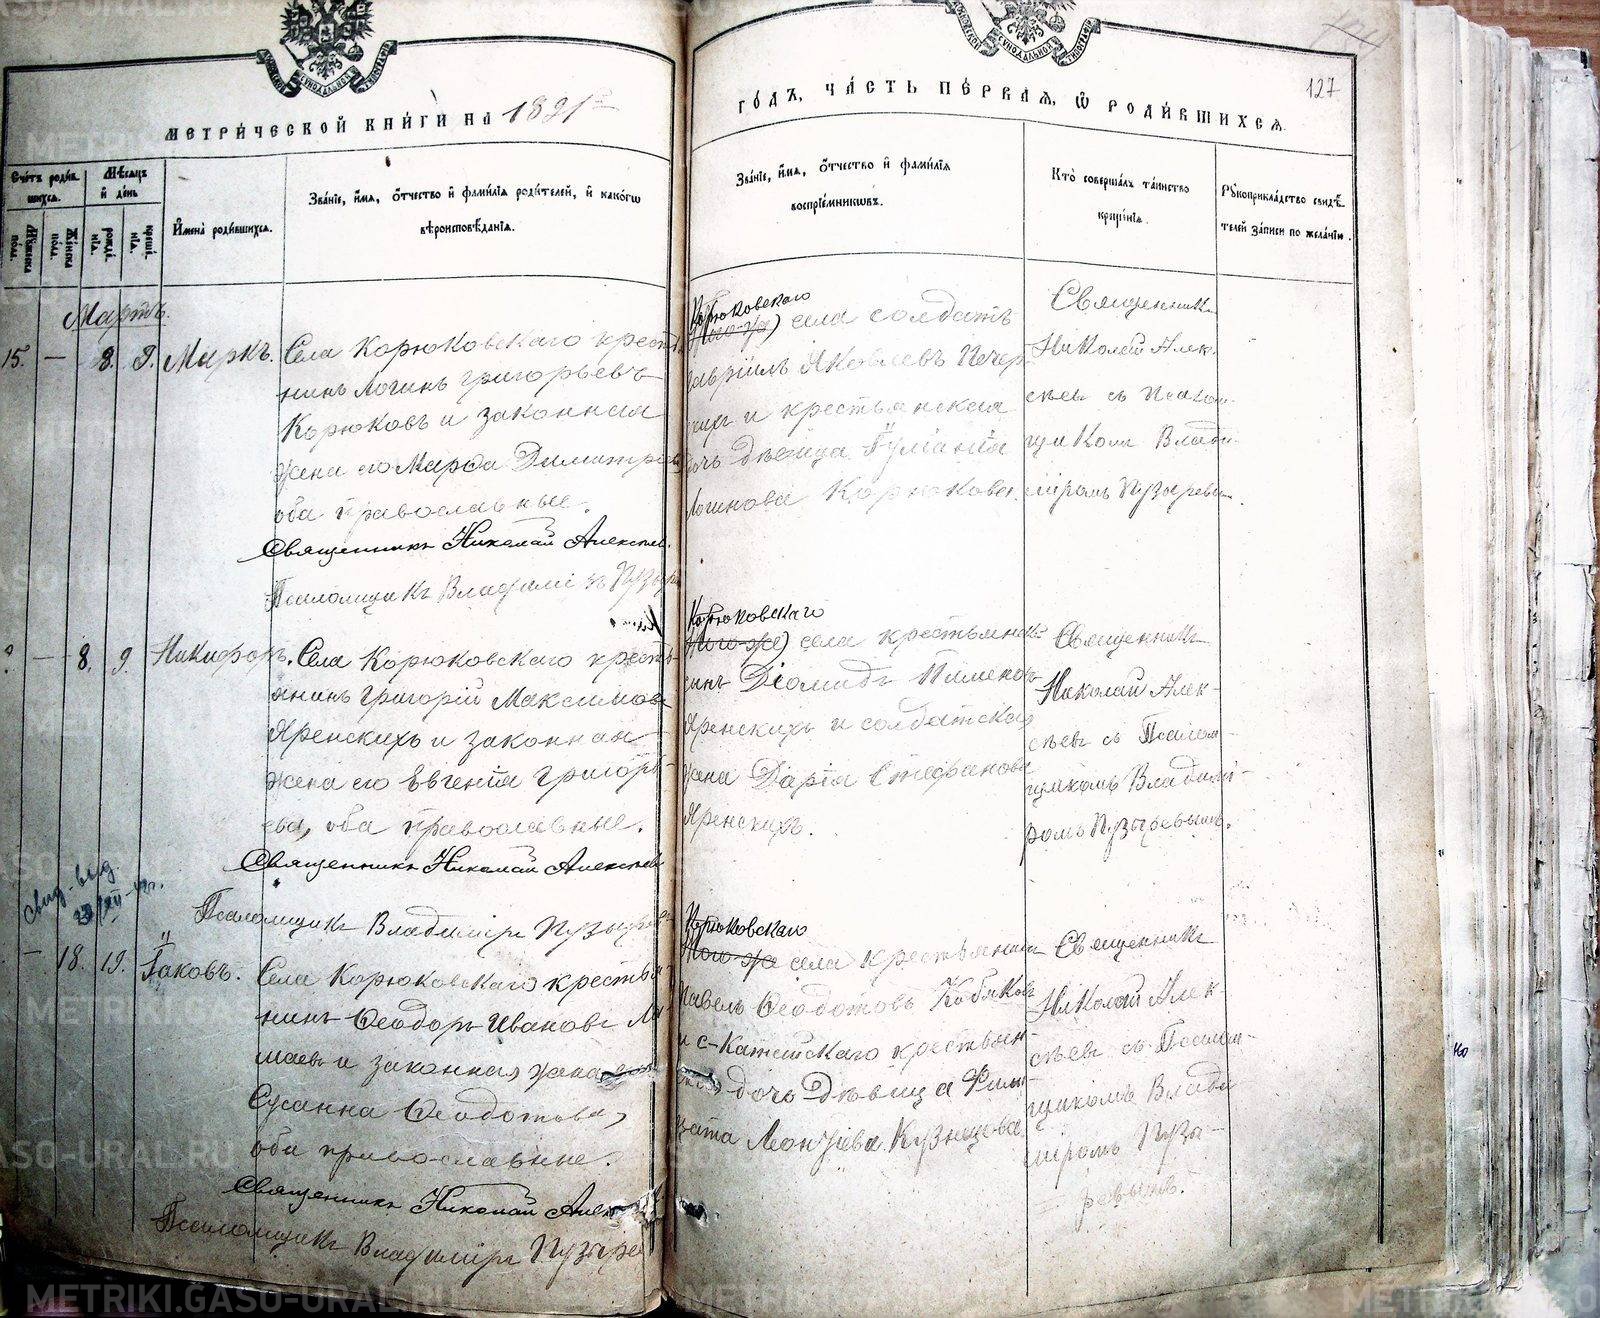 127
МЕТРИ́ЧЕСКОЙ КНИ́ГИ НА 1891 г.
ГО́ДЪ, ЧА́СТЬ ПЕ́РВАЯ, Ѡ РОДИ́ВШИХСЯ.
Сче́тъ роди́вшихся.
Му́жеска по́ла.
Же́нска по́ла.
Мѣ́сяцъ и де́нь
рожде́нїя.
креще́нїя.
И҆мена̀ роди́вшихся.
Зва́нїе, и҆́мя, о҆́тчество и҆ фами́лїя роди́телей, и҆ како́гѡ
вѣроисповѣ́данїя.
Зва́нїе, и҆́мя, о҆́тчество и҆ фами́лїя
воспрїе́мникѡвъ.
Кто̀ соверша́лъ та́инство
креще́нїя.
Рꙋкоприкла́дство свидѣ́-
телей за́писи по жела́нїю.
Мартъ.
15. — 8. 9. Маркъ.
Села Корюковскаго крестья
нинъ Логинъ Григорьевъ
Корюковъ и законная
жена его Марѳа Димитріева
оба православные.
Священникъ Николай Алексѣев.
Псаломщикъ Владиміръ Пузырев
Корюковскаго
Того-же) села солдатъ
Гавріилъ Яковлевъ Печер
кихъ и крестьянская
дочь дѣвица Іуліанія
Логинова Корюкова.
Священникъ
Николай Алек-
сѣевъ съ Псалом-
щикомъ Влади-
міромъ Пузыревым.
— 8. 9. Никифоръ.
Села Корюковскаго кресть-
янинъ Григорій Максимовъ
Яренскихъ и законная
жена его Евгенія Григорь-
ева, оба православные.
Священникъ Николай Алексѣев
Псаломщикъ Владиміръ Пузырев
Корюковскаго
Того-же) села крестьянскій
сынъ Діомидъ Пименовъ
Яренскихъ и солдатская
жена Дарія Стефанова
Яренскихъ.
Священникъ
Николай Алек-
сѣевъ съ Псалом-
щикомъ Владимі-
ромъ Пузыревымъ.
Свид. выд.
— 18. 19. Іаковъ.
Села Корюковскаго крестья-
нинъ Ѳеодоръ Ивановъ
и законная жена его
Сусанна Ѳеодотова,
оба православные.
Священникъ Николай Алек
Псаломщикъ Владиміръ Пузыре
Корюковскаго
Того-же села крестьянинъ
Павелъ Ѳеодотовъ Кобяковъ
и с-Катайскаго крестьян-
ская дочь Дѣвица Фили-
цата Леонтіева Кузнецова.
Священникъ
Николай Алек-
сѣевъ съ Псалом-
щикомъ Влади
міромъ Пузы-
ревымъ.
160
METRIKI.GASO-URAL.RU